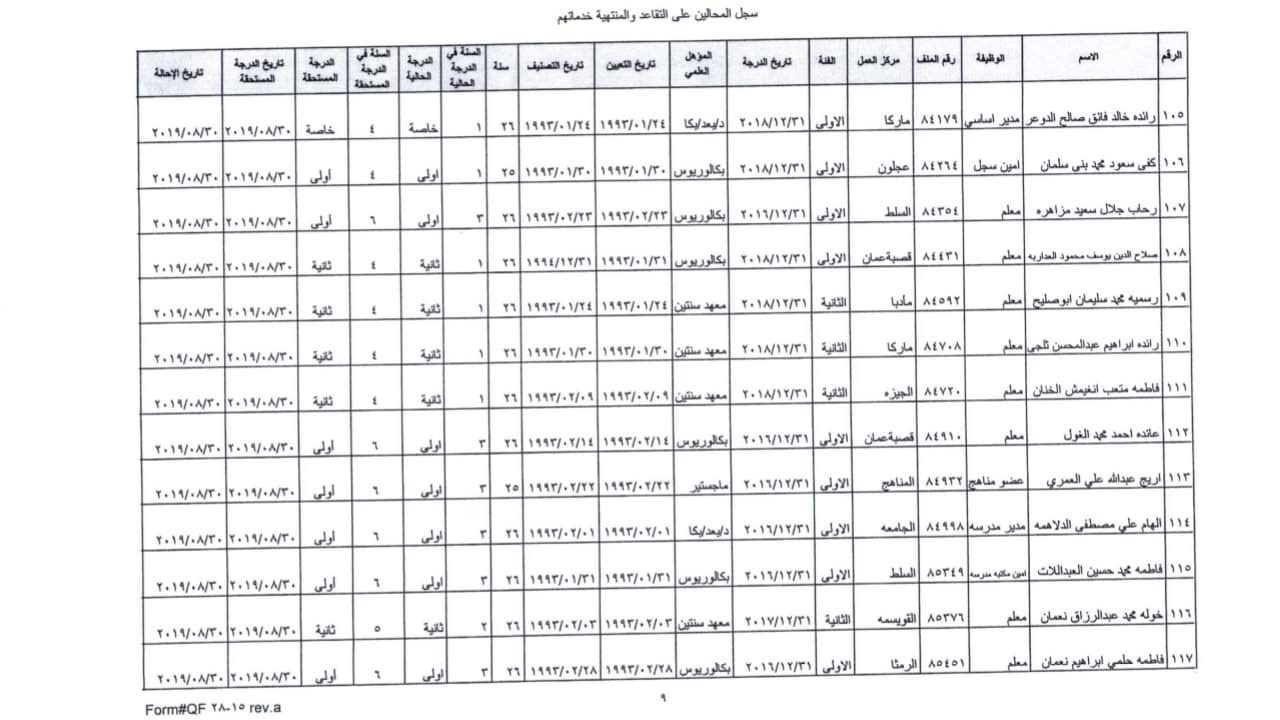 سجل المحالين على التقاعد والمنتهية خدماتهم
الرقم الاسم الوظيفة رقم الملف مركز العمل الفئة تاريخ الدرجة المؤهل العلمي تاريخ التعيين تاريخ التصنيف سنة السنة في الدرجة الحالية الدرجة الحالية السنة في الدرجة المستحقة الدرجة المستحقة تاريخ الدرجة المستحقة تاريخ الإحالة
١٠٥ رائده خالد فائق صالح الدوعر مدير اساسي ٨٤١٧٩ ماركا الاولى ٢٠١٨/١٢/٣١ د/بعد/بكا ١٩٩٣/٠١/٢٤ ١٩٩٣/٠١/٢٤ ٢٦ ١ خاصة ٤ خاصة ٢٠١٩/٠٨/٣٠ ٢٠١٩/٠٨/٣٠
١٠٦ كفى سعود محمد بني سلمان امين سجل ٨٤٢٦٤ عجلون الاولى ٢٠١٨/١٢/٣١ بكالوريوس ١٩٩٣/٠١/٣٠ ١٩٩٣/٠١/٣٠ ٢٥ ١ اولى ٤ أولى ٢٠١٩/٠٨/٣٠ ٢٠١٩/٠٨/٣٠
١٠٧ رحاب جلال سعيد مزاهره معلم ٨٤٣٥٤ السلط الاولى ٢٠١٦/١٢/٣١ بكالوريوس ١٩٩٣/٠٢/٢٣ ١٩٩٣/٠٢/٢٣ ٢٦ ٣ اولى ٦ أولى ٢٠١٩/٠٨/٣٠ ٢٠١٩/٠٨/٣٠
١٠٨ صلاح الدين يوسف محمود العداربه معلم ٨٤٤٣١ قصبةعمان الاولى ٢٠١٨/١٢/٣١ بكالوريوس ١٩٩٣/٠١/٣١ ١٩٩٤/١٢/٣١ ٢٦ ١ ثانية ٤ ثانية ٢٠١٩/٠٨/٣٠ ٢٠١٩/٠٨/٣٠
١٠٩ رسميه محمد سليمان ابوصليح معلم ٨٤٥٩٢ مأدبا الثانية ٢٠١٨/١٢/٣١ معهد سنتين ١٩٩٣/٠١/٢٤ ١٩٩٣/٠١/٢٤ ٢٦ ١ ثانية ٤ ثانية ٢٠١٩/٠٨/٣٠ ٢٠١٩/٠٨/٣٠
١١٠ رائده ابراهيم عبدالمحسن ثلجي معلم ٨٤٧٠٨ ماركا الثانية ٢٠١٨/١٢/٣١ معهد سنتين ١٩٩٣/٠١/٣٠ ١٩٩٣/٠١/٣٠ ٢٦ ١ ثانية ٤ ثانية ٢٠١٩/٠٨/٣٠ ٢٠١٩/٠٨/٣٠
١١١ فاطمه متعب انغيمش الخنان معلم ٨٤٧٢٠ الجيزه الثانية ٢٠١٨/١٢/٣١ معهد سنتين ١٩٩٣/٠٢/٠٩ ١٩٩٣/٠٢/٠٩ ٢٦ ١ ثانية ٤ ثانية ٢٠١٩/٠٨/٣٠ ٢٠١٩/٠٨/٣٠
١١٢ عائده احمد محمد الغول معلم ٨٤٩١٠ قصبةعمان الاولى ٢٠١٦/١٢/٣١ بكالوريوس ١٩٩٣/٠٢/١٤ ١٩٩٣/٠٢/١٤ ٢٦ ٣ اولى ٦ أولى ٢٠١٩/٠٨/٣٠ ٢٠١٩/٠٨/٣٠
١١٣ اريج عبدالله علي العمري عضو مناهج ٨٤٩٣٢ المناهج الاولى ٢٠١٦/١٢/٣١ ماجستير ١٩٩٣/٠٢/٢٢ ١٩٩٣/٠٢/٢٢ ٢٥ ٣ اولى ٦ أولى ٢٠١٩/٠٨/٣٠ ٢٠١٩/٠٨/٣٠
١١٤ الهام علي مصطفى الدلاهمه مدير مدرسه ٨٤٩٩٨ الجامعه الاولى ٢٠١٦/١٢/٣١ د/بعد/بكا ١٩٩٣/٠٢/٠١ ١٩٩٣/٠٢/٠١ ٢٦ ٣ اولى ٦ أولى ٢٠١٩/٠٨/٣٠ ٢٠١٩/٠٨/٣٠
١١٥ فاطمه محمد حسين العبداللات امين مكتبه مدرسه ٨٥٣٤٩ السلط الاولى ٢٠١٦/١٢/٣١ بكالوريوس ١٩٩٣/٠١/٣١ ١٩٩٣/٠١/٣١ ٢٦ ٣ اولى ٦ أولى ٢٠١٩/٠٨/٣٠ ٢٠١٩/٠٨/٣٠
١١٦ خوله محمد عبدالرزاق نعمان معلم ٨٥٣٧٦ القويسمه الثانية ٢٠١٧/١٢/٣١ معهد سنتين ١٩٩٣/٠٢/٠٣ ١٩٩٣/٠٢/٠٣ ٢٦ ٢ ثانية ٥ ثانية ٢٠١٩/٠٨/٣٠ ٢٠١٩/٠٨/٣٠
١١٧ فاطمه حلمي ابراهيم نعمان معلم ٨٥٤٥١ الرمثا الاولى ٢٠١٦/١٢/٣١ بكالوريوس ١٩٩٣/٠٢/٢٨ ١٩٩٣/٠٢/٢٨ ٢٦ ٣ اولى ٦ أولى ٢٠١٩/٠٨/٣٠ ٢٠١٩/٠٨/٣٠
٩
Form#QF ٢٨-١٥ rev.a